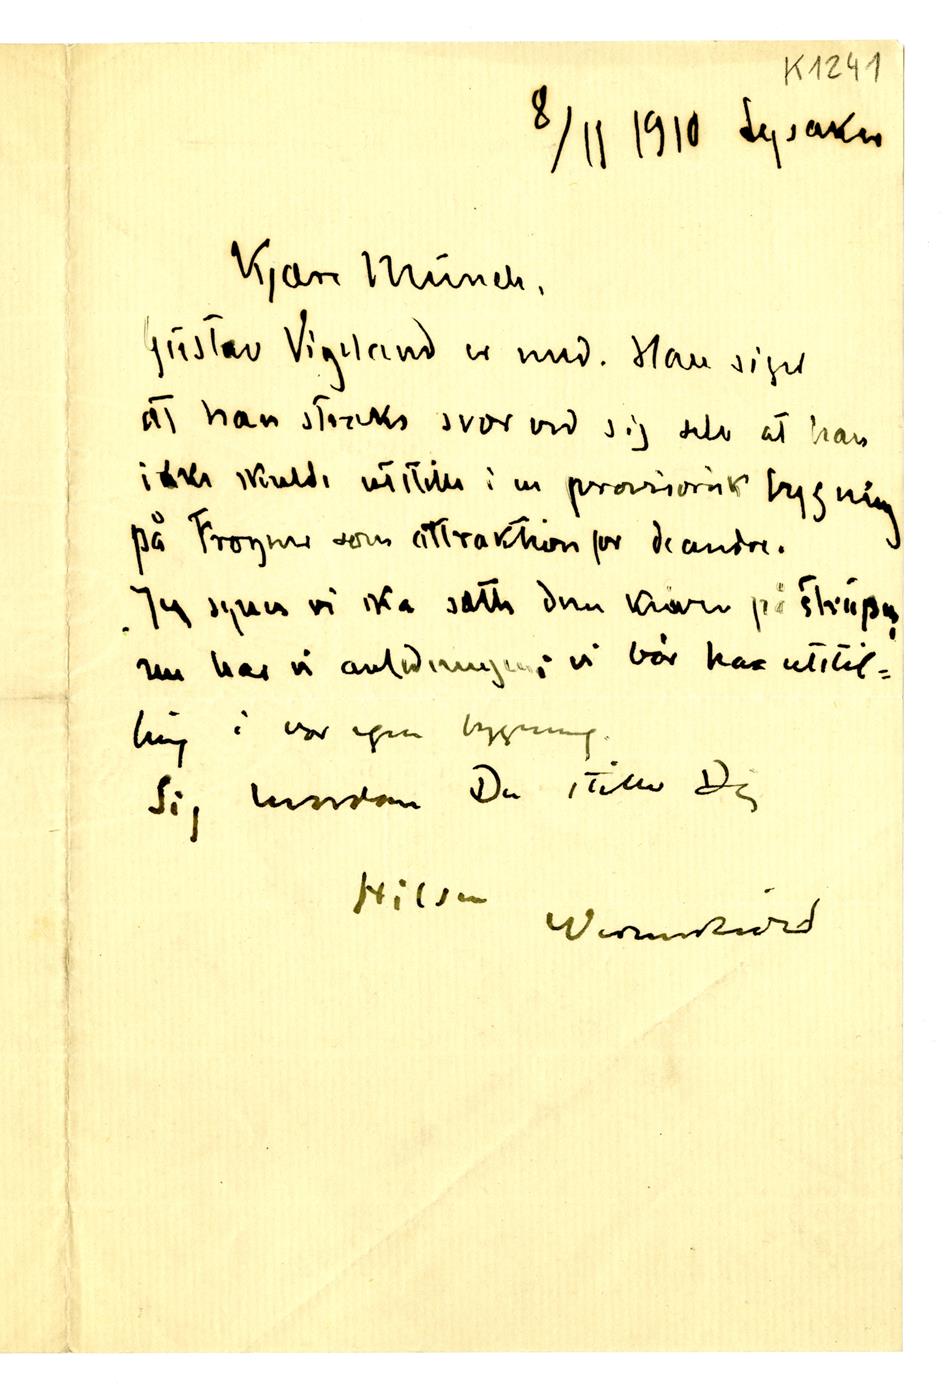 K1241
8/11 1910 Lysaker
Kjære Münch.
Gustav Vigeland er med. Han siger
at han straks svor ved sig selv at han
ikke skulde utstille i en provisorisk bygning
på Frogner som attraktion for de andre.
Jeg synes vi ska sætte dem kniven på strüpen,
nu har vi anledningen; vi bør haa utstil-
ling i vor egen bygning.
Sig hvordan Du stiller Dig
Hilsen
Werenskiold